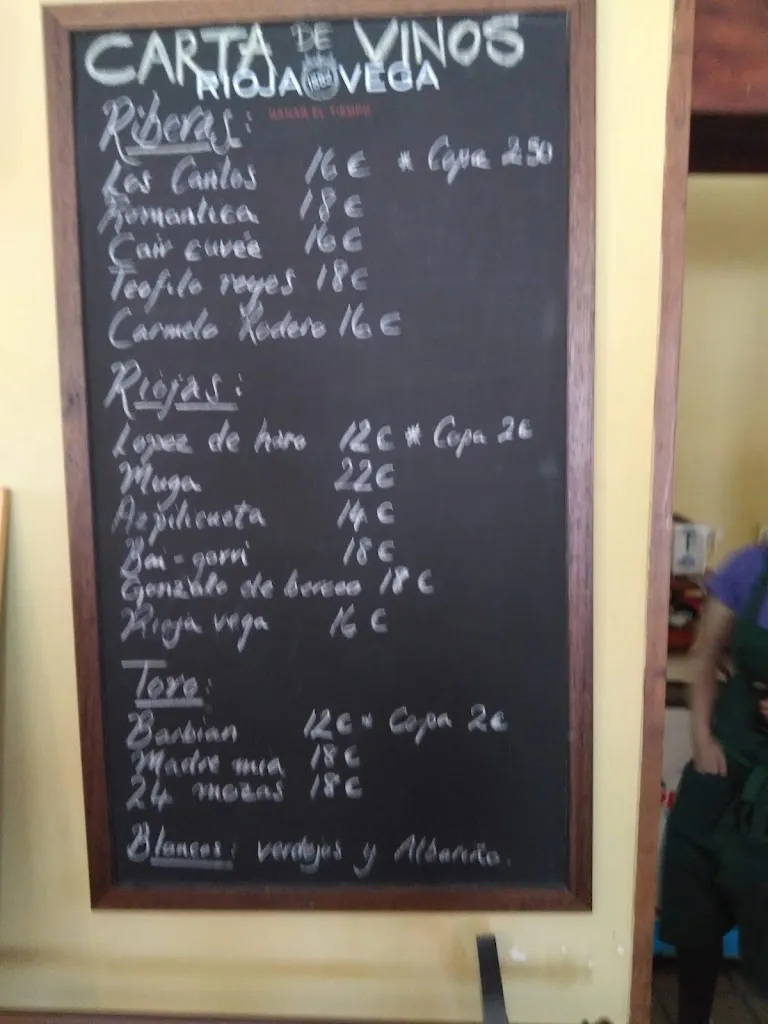 CARTA DE VINOS
RIOJA VEGA
Riberas:
Los Cantos 16€ * Copa 2'50
Romantica 18€
Cair cuvée 16€
Teofilo reyes 18€
Carmelo Rodero 16€
Riojas:
Lopez de haro 12€ * Copa 2€
Muga 22€
Azpilicueta 14€
Bai-gorri 18€
Gonzalo de berceo 18€
Rioja vega 16€
Toro:
Barbian 12€ * Copa 2€
Madre mia 18€
24 mozas 18€
Blancos: verdejos y Albariño.